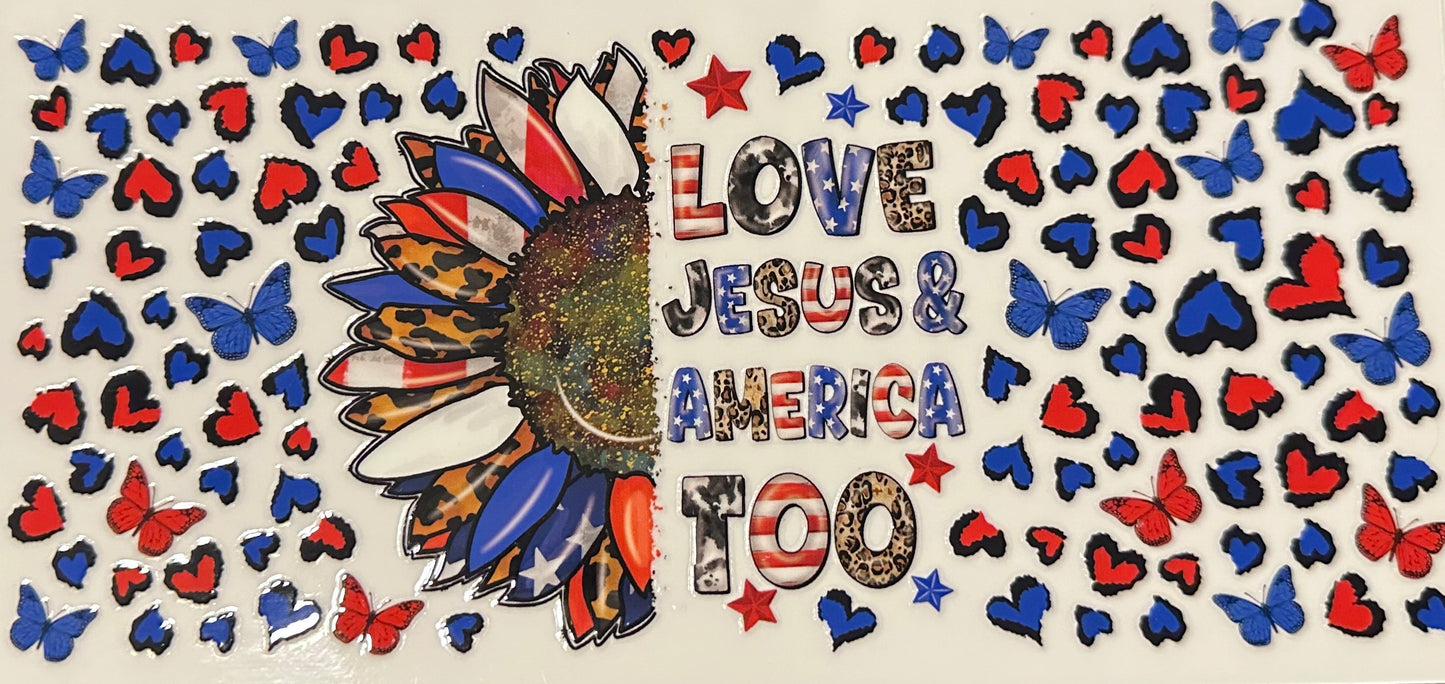 LOVE
JESUS &
AMERICA
TOO